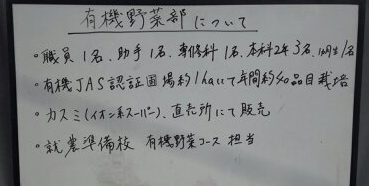 有機野菜部について
・職員1名、助手1名、専修科1名、本科2年3名、1名
・有機JAS認証圃場約1haにて年間約40品目栽培
・カスミ(イオン系スーパー)、直売所にて販売
・就農準備校 有機野菜コース 担当